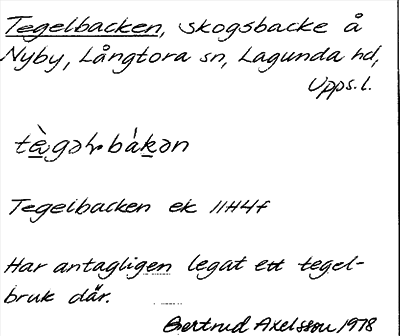 Tegelbacken, skogsbacke å
Nyby, Långtora sn, Lagunda hd,
Upps.l.
tègəl.bákən
Tegelbacken ek 11H4f
Har antagligen legat ett tegel-
bruk där.
Gertrud Axelsson 1978